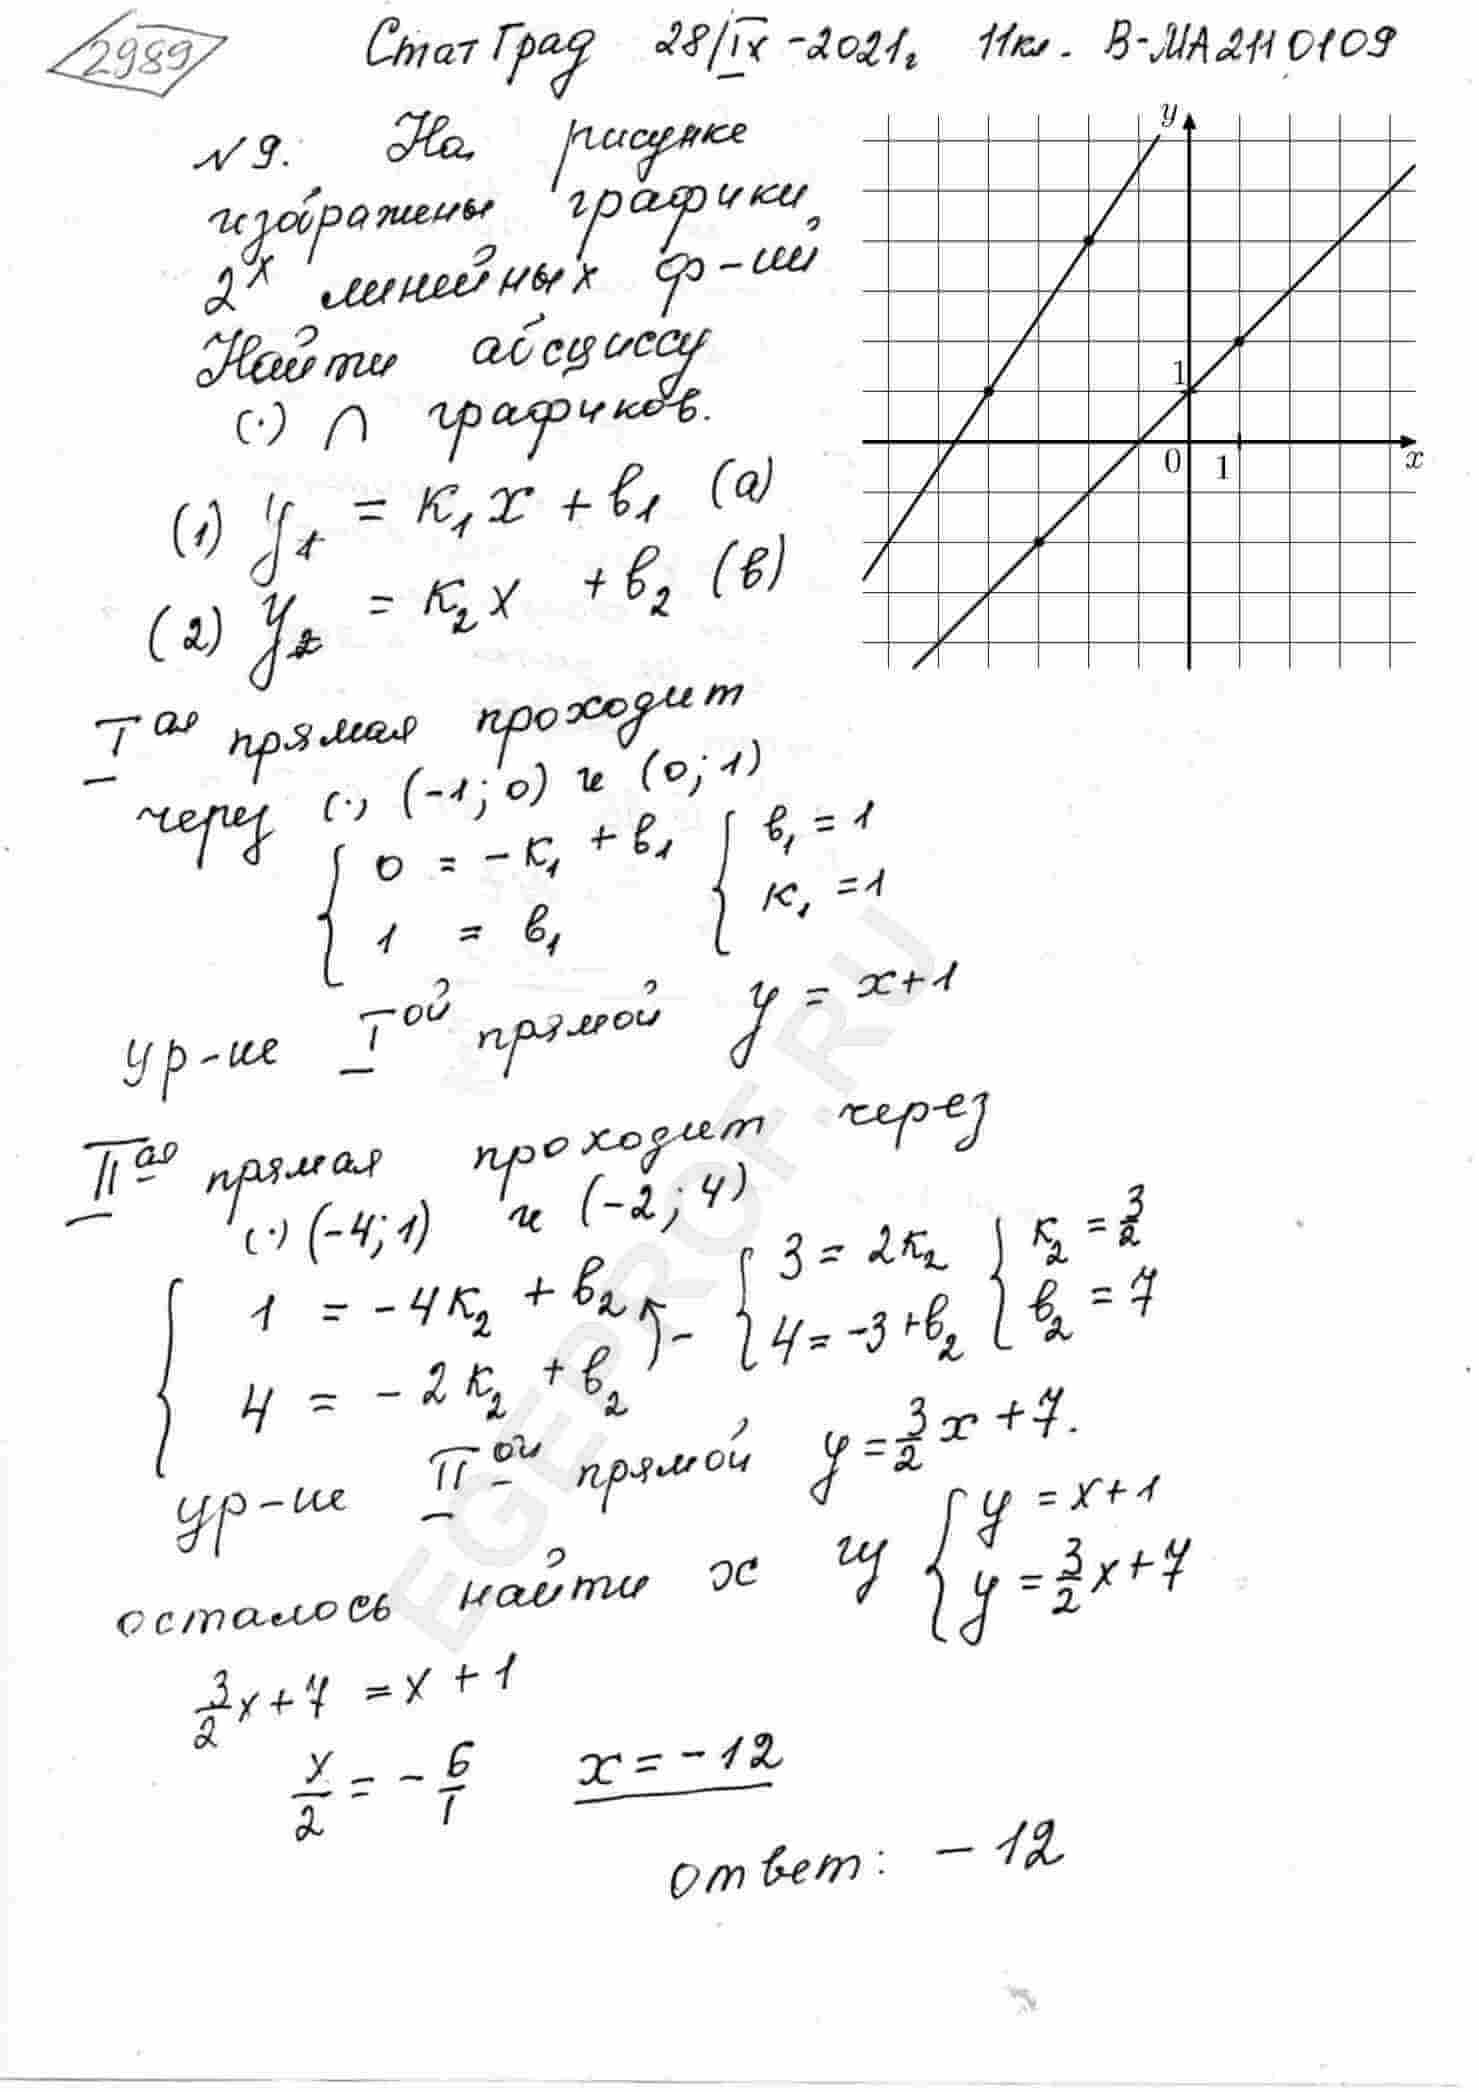 2989
СтатГрад 28/IX-2021г 11кл. В-МА2110109
№9. На рисунке
изображены графики
2х линейных ф-ий
Найти абсциссу
(·) ∩ графиков.
y
1
0
1
x
(1) y₁ = к₁x + в₁ (а)
(2) y₂ = к₂x + в₂ (в)
Iая прямая проходит
через (·) (-1; 0) и (0; 1)
{ 0 = -к₁ + в₁ { в₁ = 1
1 = в₁ к₁ = 1
ур-ие Iой прямой y = x+1
IIая прямая проходит через
(·) (-4; 1) и (-2; 4)
{ 1 = -4к₂ + в₂ - { 3 = 2к₂ { к₂ = 3/2
4 = -2к₂ + в₂ 4 = -3+в₂ в₂ = 7
ур-ие IIой прямой y = 3/2 x + 7.
осталось найти x из { y = x+1
y = 3/2 x + 7
3/2 x + 7 = x + 1
x/2 = - 6/1 x = -12
ответ: -12
EGEPROF.RU